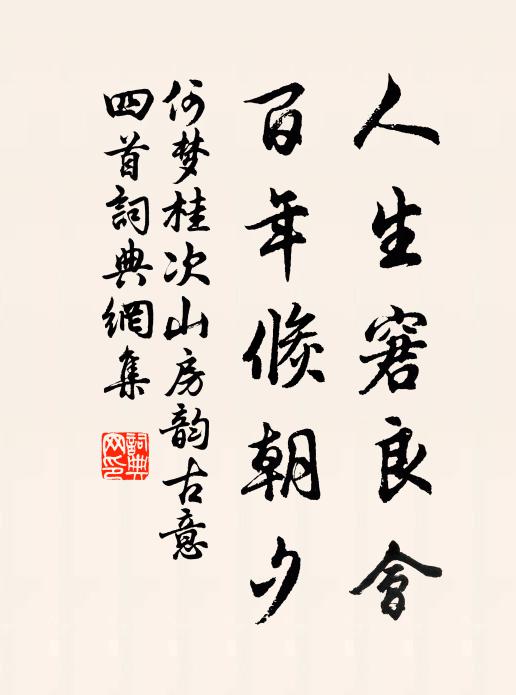 人生窘良會
百年倐朝夕
何梦桂次山房韵古意
四首詞典網集
詞典
网印